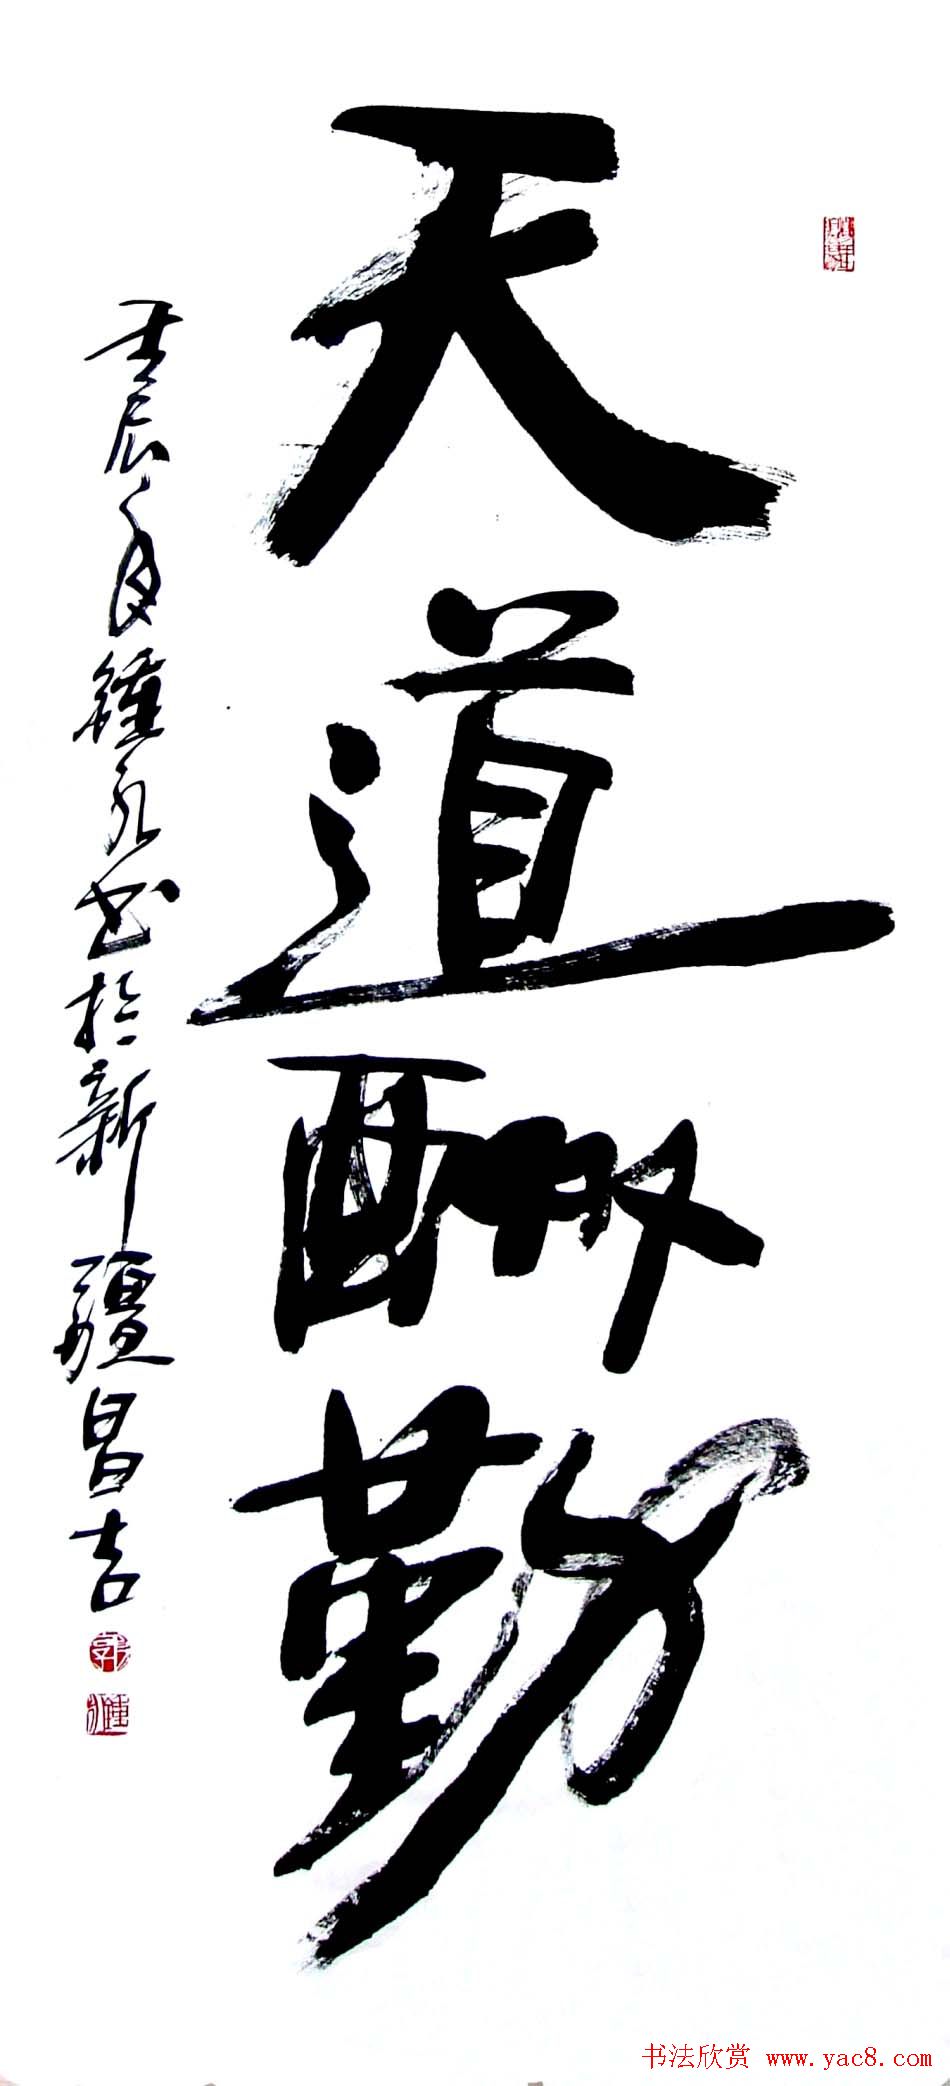 天道酬勤
壬辰夏鍾永书於新疆昌吉
郭
书法欣赏 www.yac8.com